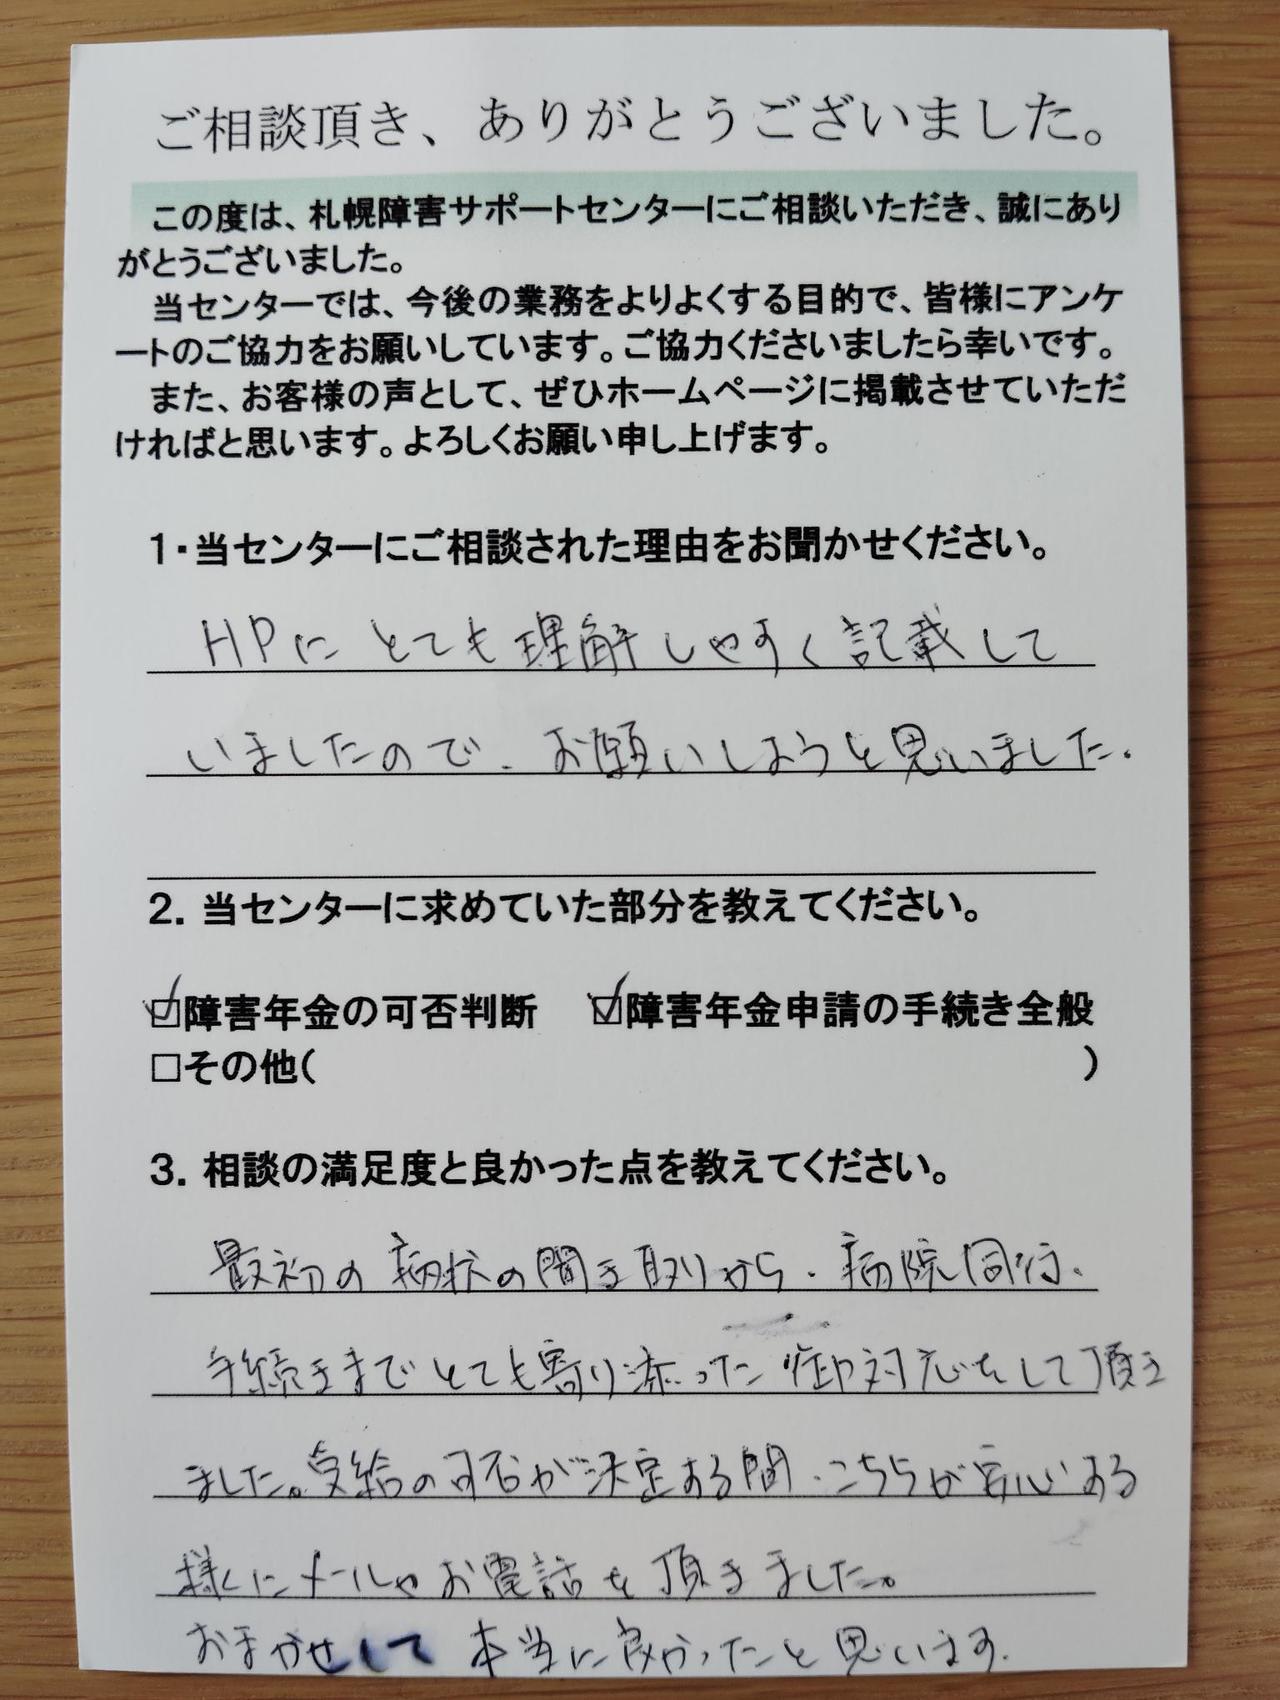 ご相談頂き、ありがとうございました。
この度は、札幌障害サポートセンターにご相談いただき、誠にあり
がとうございました。
当センターでは、今後の業務をよりよくする目的で、皆様にアンケ
ートのご協力をお願いしています。ご協力くださいましたら幸いです。
また、お客様の声として、ぜひホームページに掲載させていただ
ければと思います。よろしくお願い申し上げます。
1・当センターにご相談された理由をお聞かせください。
HPにとても理解しやすく記載して
いましたので、お願いしようと思いました.
2. 当センターに求めていた部分を教えてください。
☑障害年金の可否判断 ☑障害年金申請の手続き全般
□その他( )
3. 相談の満足度と良かった点を教えてください。
最初の病状の聞き取りから、病院同行、
手続きまでとても寄り添った御対応をして頂き
ました。受給の可否が決定する間、こちらが安心する
様にメールやお電話を頂きました。
おまかせして本当に良かったと思います.